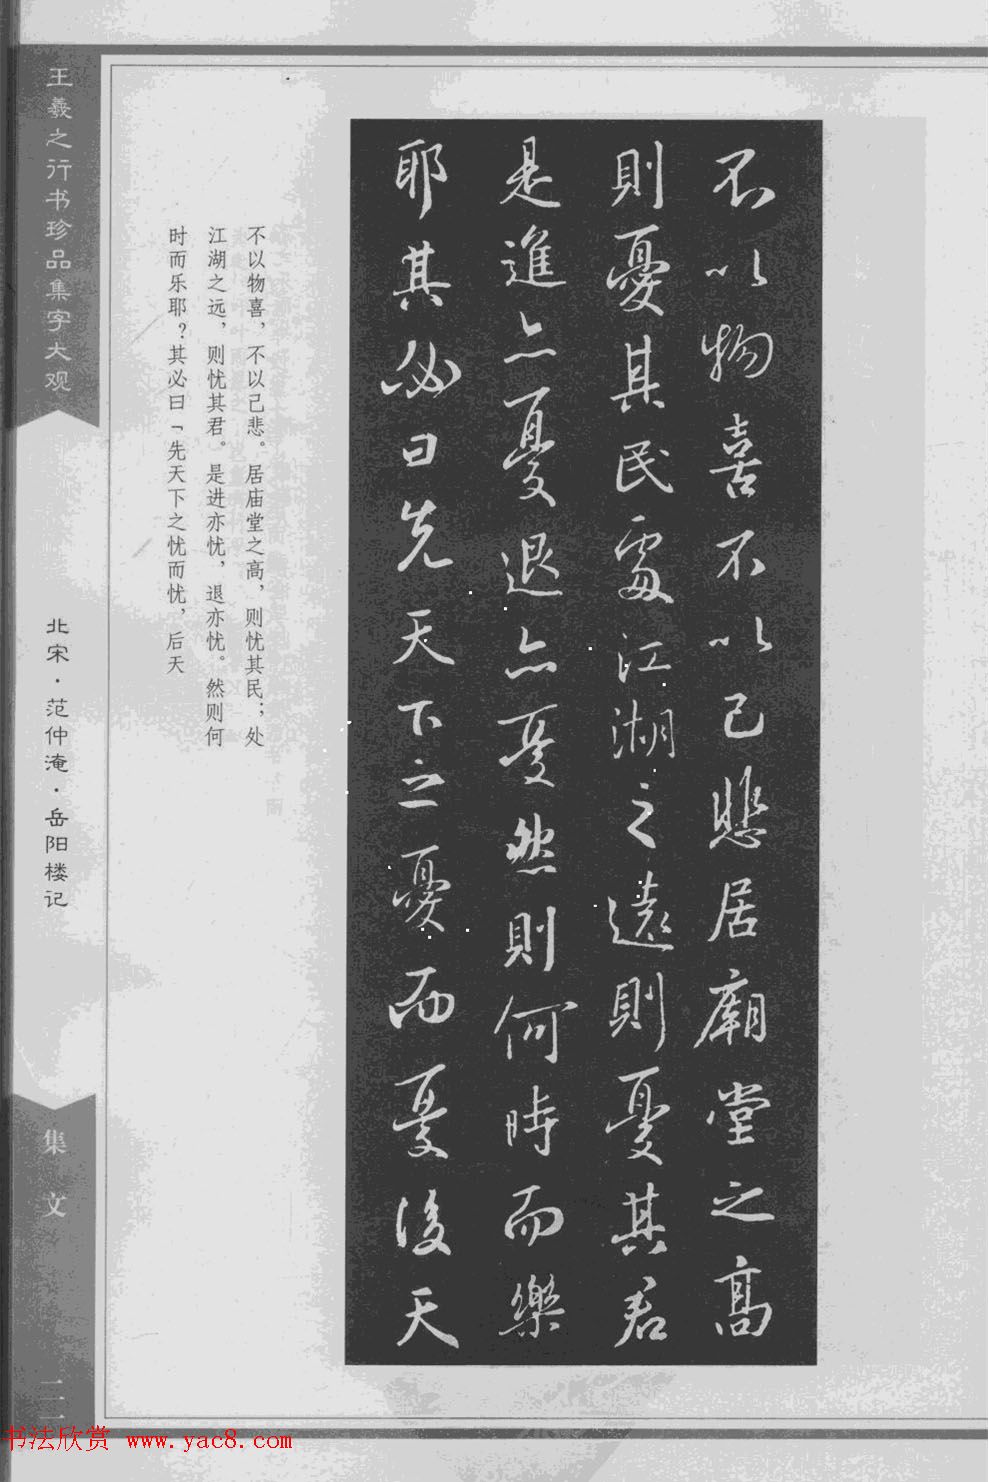 不以物喜不以己悲居廟堂之高
則憂其民處江湖之遠則憂其君
是進亦憂退亦憂然則何時而樂
耶其必曰先天下之憂而憂後天
不以物喜，不以己悲。居庙堂之高，则忧其民；处
江湖之远，则忧其君。是进亦忧，退亦忧。然则何
时而乐耶？其必曰「先天下之忧而忧，后天
王羲之行书珍品集字大观
北宋·范仲淹·岳阳楼记
集文
二一
书法欣赏 www.yac8.com